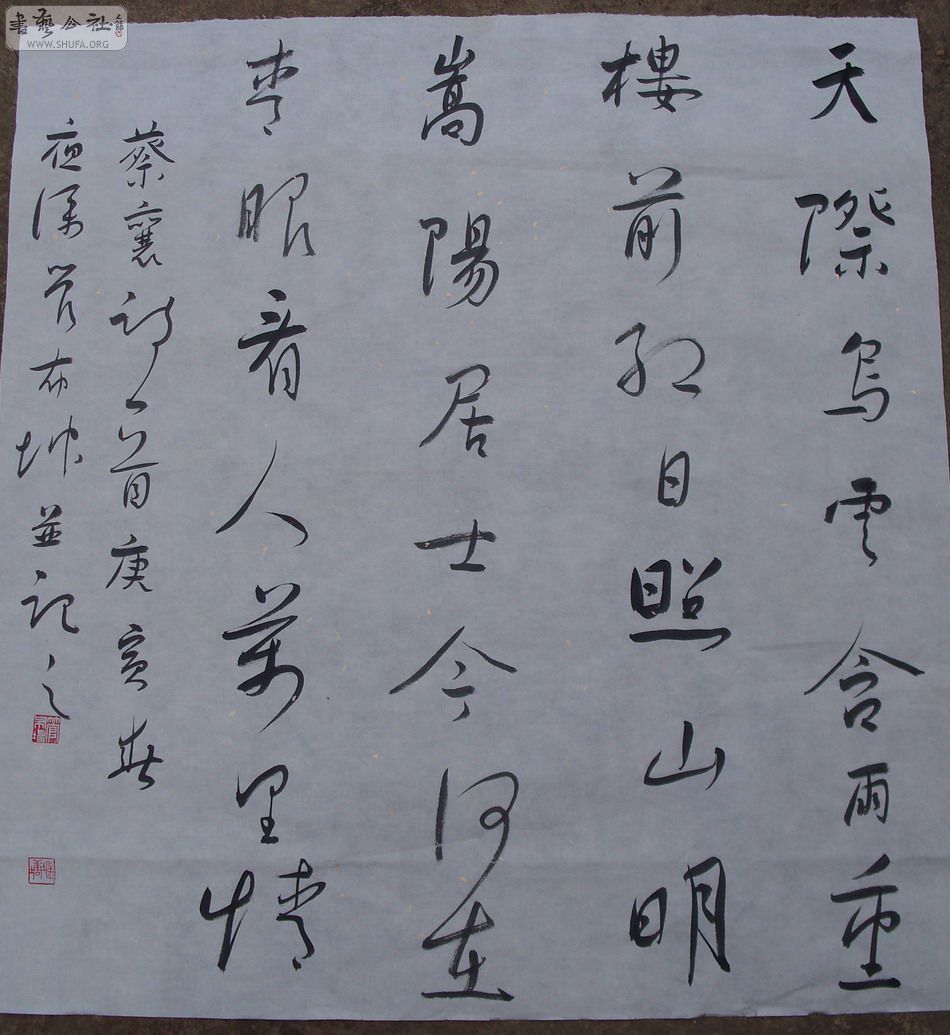 書藝公社
WWW.SHUFA.ORG
天際烏雲含雨重
樓前紅日照山明
嵩陽居士今何在
青眼看人萬里情
蔡襄詩一首庚寅春
夜深管布坤並記之